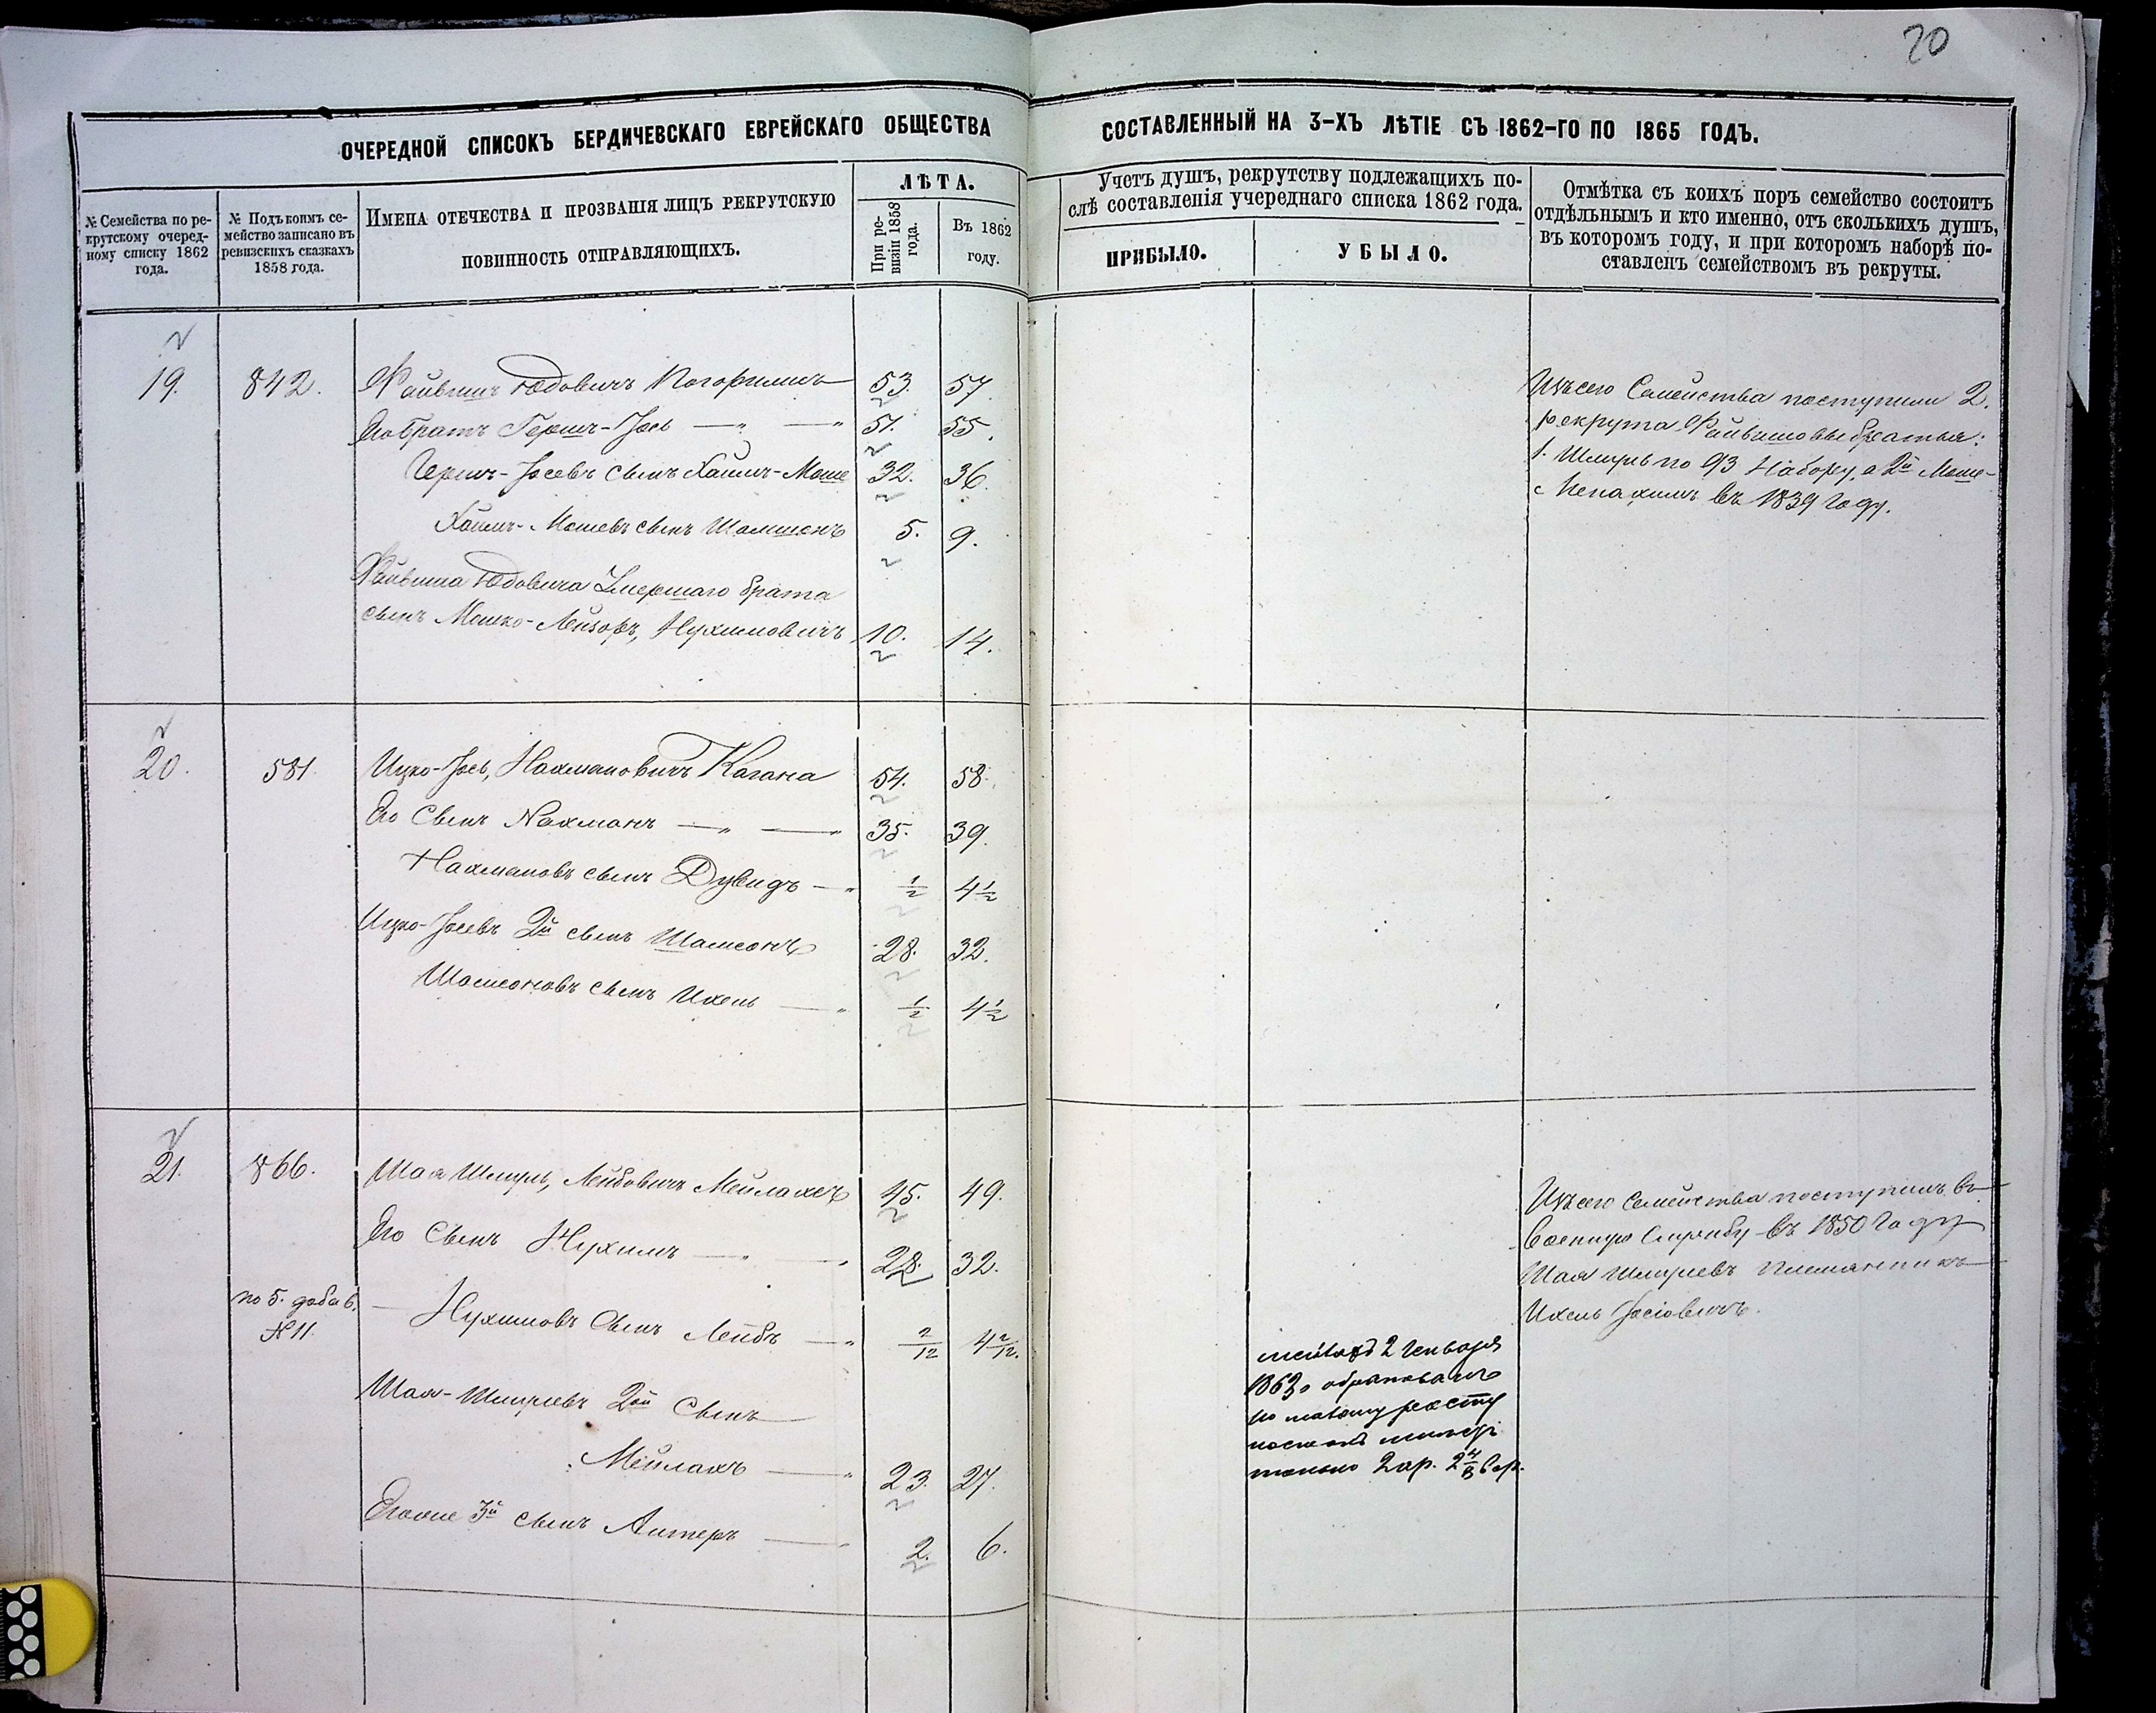 20
ОЧЕРЕДНОЙ СПИСОКЪ БЕРДИЧЕВСКАГО ЕВРЕЙСКАГО ОБЩЕСТВА
СОСТАВЛЕННЫЙ НА 3-ХЪ ЛѢТІЕ СЪ 1862-ГО ПО 1865 ГОДЪ.
№ Семейства по ре-
крутскому очеред-
ному списку 1862
года.
№ Подъ коимъ се-
мейство записано въ
ревизскихъ сказкахъ
1858 года.
Имена отечества и прозванія лицъ рекрутскую
повинность отправляющихъ.
ЛѢТА.
При ре-
визіи 1858
года.
Въ 1862
году.
Учетъ душъ, рекрутству подлежащихъ по-
слѣ составленія учереднаго списка 1862 года.
ПРИБЫЛО.
УБЫЛО.
Отмѣтка съ коихъ поръ семейство состоитъ
отдѣльнымъ и кто именно, отъ сколькихъ душъ,
въ которомъ году, и при которомъ наборѣ по-
ставленъ семействомъ въ рекруты.
19. 842. Файвишъ Юдовичъ 53. 57.
Его братъ Гершъ-Іось — „ — „ 51. 55.
Гершъ-Іосевъ сынъ Хаимъ-Моше 32. 36.
Хаимъ-Мошевъ сынъ Шамшонъ 5. 9.
Файвиша Юдовича Умершаго брата
сынъ Мошко-Лейзоръ, Нухимовичъ 10. 14.
Изъ сего Семейства поступили 2.
рекрута Файвишовы братья:
1. Шмуль по 93 Набору, а 2й Моше-
Менахимъ въ 1839 году.
20. 581. Ицко-Іось, Нахмановичъ Кагана 54. 58.
Его Сынъ Нахманъ — „ — „ 35. 39.
Нахмановъ сынъ Дувидъ — „ 1/2 4 1/2
Ицко-Іосевъ 2й сынъ Шамсонъ 28. 32.
Шамсоновъ сынъ Ихель — „ 1/2 4 1/2
21. 866. Шая Шмуль, Лейбовичъ Мейлахъ 45. 49.
Его Сынъ Нухимъ — „ — „ 28. 32.
по 5. добав.
№ 11.
Нухимовъ Сынъ Лейбъ — „ 2/12 4 2/12.
Шая-Шмулевъ 2ой Сынъ
Мейлахъ — „ 23. 27.
Егоже 3й сынъ Алтеръ — „ 2. 6.
2 Генваря
1863
по малому росту
только 2 ар. 2 4/8 вер.
Изъ сего Семейства поступилъ въ
Военную Службу въ 1850 Году
Шая Шмулевъ племянникъ
Ихель Іосіовичъ.